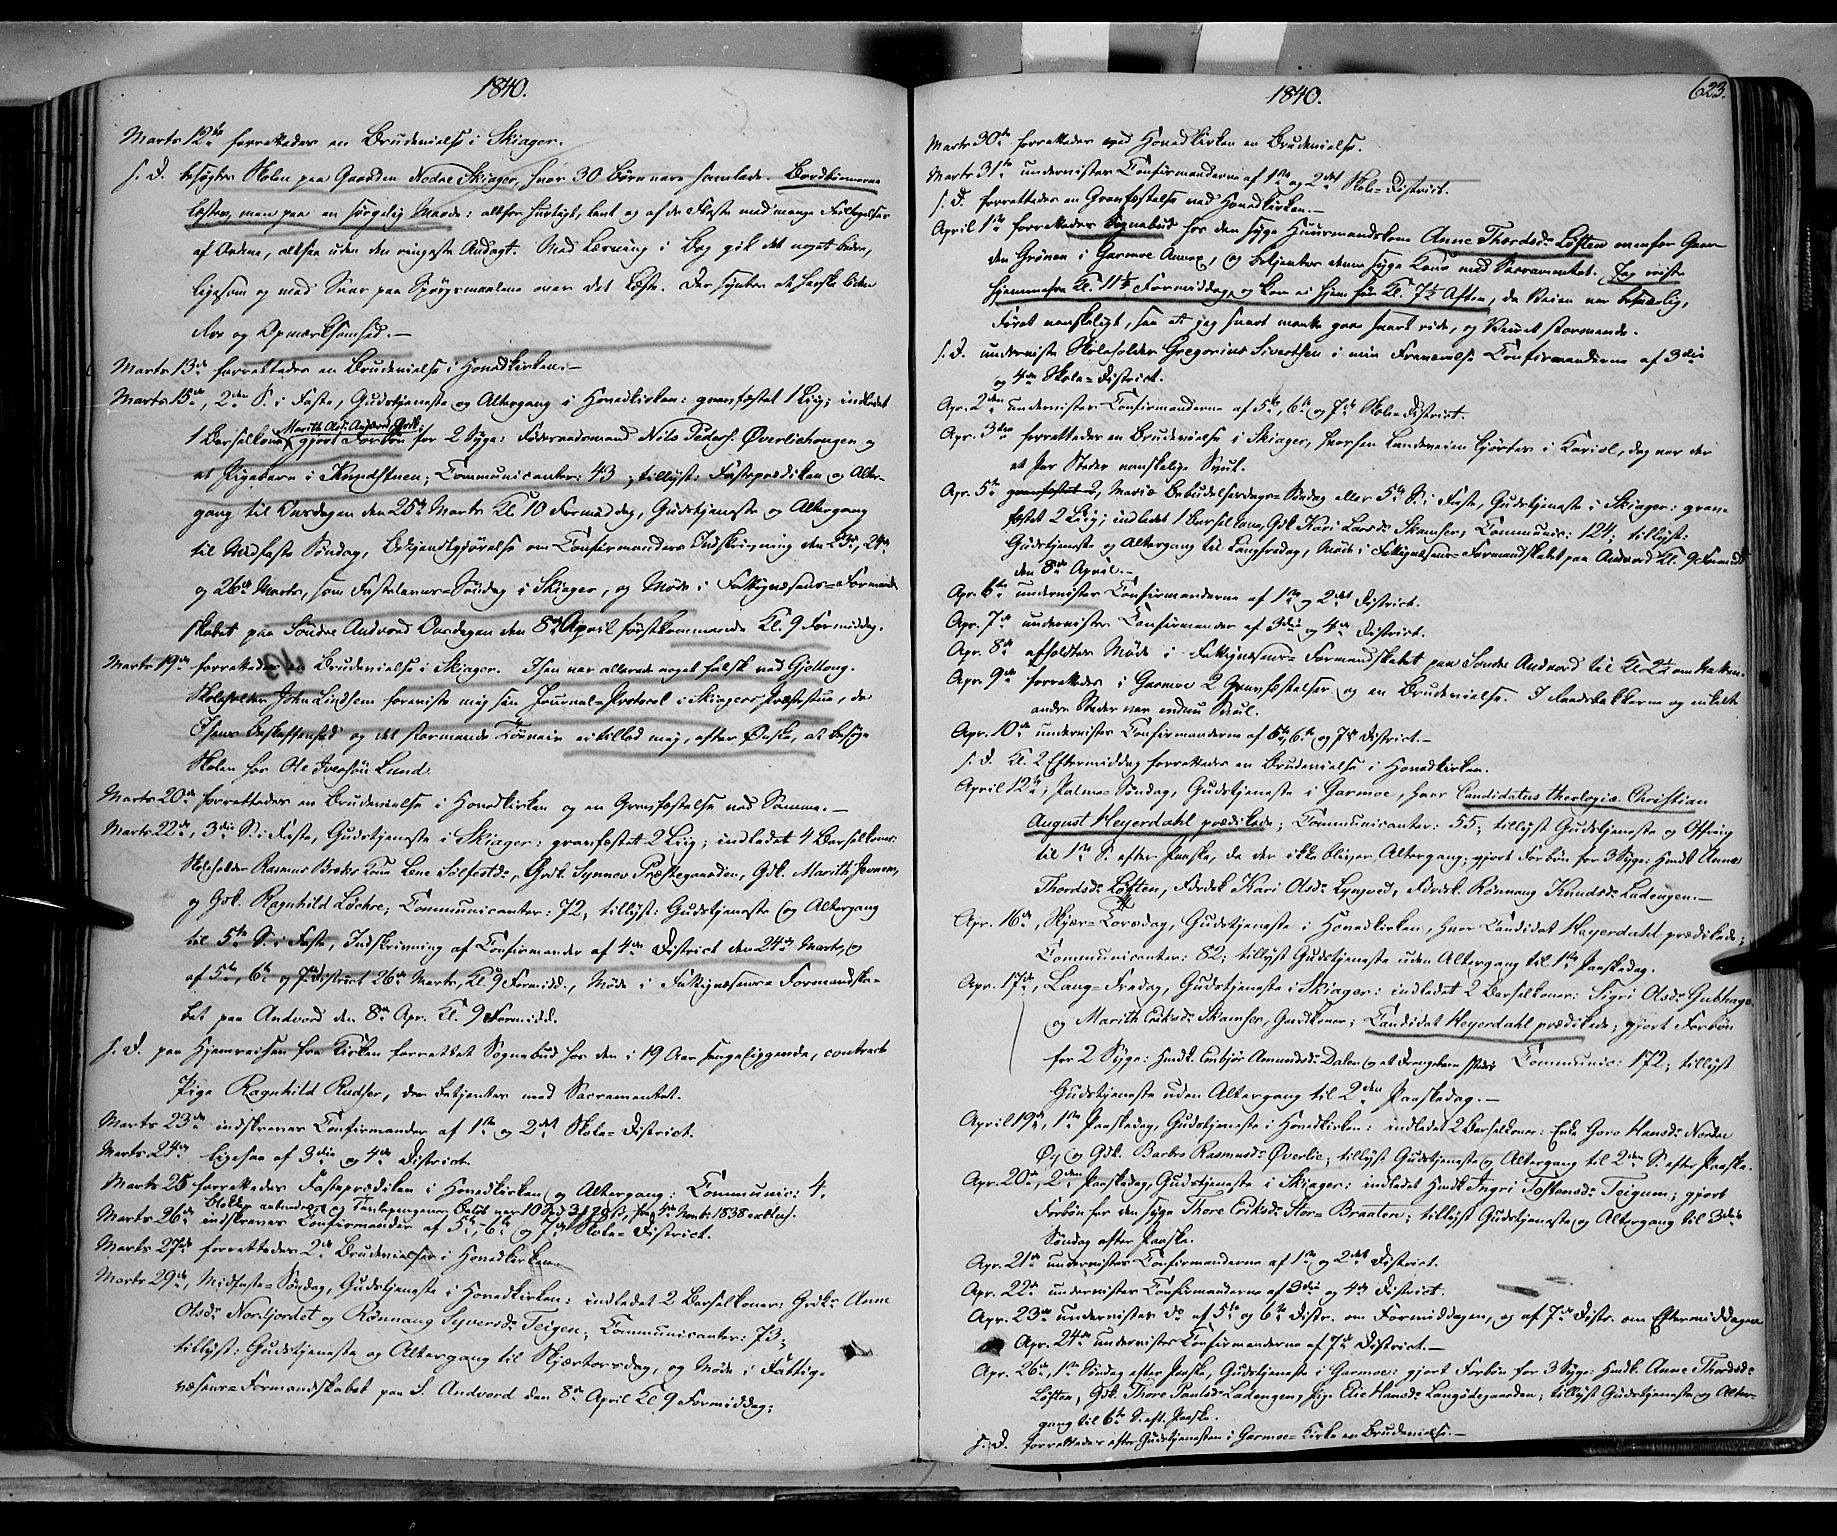 1840.
Marts 12te forrettedes en Brudevielse i Skiager.
s. D. besøgtes Skolen paa Gaarden Nedre Skiager, hvor 30 Børn vare samlede. Bordbønnerne
læstes, men paa en sørgelig Maade: altfor hurtigt, lavt og af de Fleste med mange Feiltagelser
af Ordene, altsaa uden den ringeste Andagt. Med Læsning i Bog gik det noget bedre,
ligesom og med Svar paa Spørgsmaalene over det Læste. Der syntes at herske liden
Aro og Opmærksomhed. —
Marts 13de forrettedes en Brudevielse i Hovedkirken. —
Marts 15de, 2den S. i Faste, Gudstjeneste og Altergang i Hovedkirken: gravfæstet 1 Liig; indledet
Marith Olsd. Andvord, Grdk.
1 Barselkone, gjort Forbøn for 2 Syge: Føderaadsmand Nils Peders. Øverliehaugen og
et Pigebarn i Strandstuen; Communicanter: 43; tillyst: Fasteprædiken og Alter-
gang til Onsdagen den 25de Marts Kl. 10 Formiddag, Gudstjeneste og Altergang
til Midfaste Søndag, Bekjendtgjørelse om Confirmanders Indskrivning den 23de, 24de
og 26de Marts, som Fastelavns-Søndag i Skiager, og Møde i Fattigvæsens-Formand-
skabet paa Søndre Andvord Onsdagen den 8de April førstkommende Kl. 9 Formiddag.
Marts 19de forrettedes en Brudevielse i Skiager. Isen var allerede noget falsk ved Gjeilang.
Skoleholder John Lindsem foreviste mig sin Journal-Protocol i Skiagers Præstestue, da
Isens Beskaffenhed og det stormende Tøveir ei tillod mig, efter Ønske, at besøge
Skolen hos Ole Iversøn Lund.
Marts 20de forrettedes en Brudevielse i Hovedkirken og en Gravfæstelse ved Samme. —
Marts 22de, 3die S. i Faste, Gudstjeneste i Skiager: gravfæstet 2 Liig; indledet 4 Barselkoner:
Skoleholder Rasmus Bredes Kone Lene Tolfestdr., Grdk. Synnev Præstegaarden, Gdk. Marith Jevnem,
og Gdk. Ragnhild Løchre; Communicanter: 72; tillyst: Gudstjeneste og Altergang
til 5te S. i Faste, Indskrivning af Confirmander af 4de District den 24de Marts, og
af 5te, 6te og 7de District 26de Marts, Kl. 9 Formidd., Møde i Fattigvæsens-Formandska-
bet paa Andvord den 8de Apr. Kl. 9 Formidd.
s. D. paa Hjemreisen fra Kirken forrettet Sognebud hos den i 19 Aar sengeliggende, contracte
Pige Ragnhild Rudser, der betjentes med Sacramentet.
Marts 23de indskreves Confirmander af 1ste og 2det Skole-District.
Marts 24de ligesaa af 3die og 4de District.
Marts 25 forrettedes Fasteprædiken i Hovedkirken og Altergang: Communic: 4.
Blokken aabnedes og Tavlepengenes Beløb var 10 Spd 3 28 s, fra 4de Novbr. 1838 exclus.
Marts 26de indskreves Confirmander af 5te, 6te og 7de Skole-District.
Marts 27de forrettedes 2de Brudevielser i Hovedkirken.
Marts 29de, Midfaste-Søndag, Gudstjeneste i Hovedkirken: indledet 2 Barselkoner: Grdkr. Anne
Olsdr. Nordjordet og Rønnaug Syversdr. Teigen; Communicanter: 73;
tillyst: Gudstjeneste og Altergang til Skjærtorsdag, og Møde i Fattig-
væsens-Formandskabet paa S. Andvord den 8de April Kl. 9 Formiddag.
1840.
623.
Marts 30te forrettedes ved Hovedkirken en Brudevielse.
Marts 31te undervistes Confirmanderne af 1ste og 2det Skole-District.
s. D. forrettedes en Gravfæstelse ved Hovedkirken. —
April 1ste forrettedes Sognebud hos den syge Huusmandskone Anne Thordsdr. Løften ovenfor Gaar-
den Grønen i Garmoe Annex, og betjentes denne syge Kone med Sacramentet. Jeg reiste
hjemmefra Kl. 11½ Formiddag, og kom ei hjem før Kl. 7½ Aften, da Veien var besværlig,
Føret vanskeligt, saa at jeg snart maatte gaae snart ride, og Veiret stormende.
s. D. underviste Skoleholder Gregorius Sivertsen i min Fraværelse Confirmanderne af 3die
og 4de Skole-District.
Apr. 2den undervistes Confirmanderne af 5te, 6te og 7de Skole-District.
Apr. 3die forrettedes en Brudevielse i Skiager, hvorhen Landeveien kjørtes i Kariol, dog var der
et Par Steder vanskelige Svul.
Apr. 5te gravfæstet 2, Mariæ Bebudelsesdags-Søndag eller 5te S. i Faste, Gudstjeneste i Skiager: grav-
fæstet 2 Liig; indledet 1 Barselkone, Gdk Kari Larsdr. Skamser, Communic: 124; tillyst:
Gudstjeneste og Altergang til Langfredag, Møde i Fattigvæsens-Formandskabet paa Andvord Kl. 9 Formidd
den 8de April. —
Apr. 6te undervistes Confirmanderne af 1ste og 2det District.
Apr. 7de undervistes Confirmander af 3die og 4de District.
Apr. 8de afholdtes Møde i Fattigvæsens-Formandskabet paa Søndre Andvord til Kl. 2½ om Natten.
Apr. 9de forrettedes i Garmoe 2 Gravfæstelser og en Brudevielse. I Raadsbakkerne og enkelte
andre Steder var endnu Svul.
Apr. 10de undervistes Confirmanderne af 5te, 6te og 7de District. —
s. D. Kl. 2 Eftermiddag forrettedes en Brudevielse i Hovedkirken.
April 12te, Palme Søndag, Gudstjeneste i Garmoe, hvor Candidatus theologiæ Christian
August Heyerdahl prædikede; Communicanter: 55; tillyst Gudstjeneste og Offring
til 1ste S. efter Paaske, da der ikke bliver Altergang; gjort Forbøn for 3 Syge: Hmdk. Anne
Thordsdr. Løften, Fdrdsk Kari Olsdr. Lyngved, Fdrdsk. Rønnaug Knudsdr. Ladengen. —
Apr. 16de, Skjær-Torsdag, Gudstjeneste i Hovedkirken, hvor Candidat Heyerdahl prædikede;
Communicanter: 82; tillyst Gudstjeneste uden Altergang til 1ste Paaskedag.
Apr. 17de, Lang-Fredag, Gudstjeneste i Skiager: indledet 2 Barselkoner: Sigri Olsdr. Gubhage
og Marith Eriksdr. Skamser, Gaardkoner; Candidat Heyerdahl prædikede; gjort Forbøn
for 2 Syge: Hmdk. Embjør Amundsdr. Dalen og et Drengebarn Communic: 172; tillyst
Gudstjeneste uden Altergang til 2den Paaskedag. —
April 19de, 1ste Paaskedag, Gudstjeneste i Hovedkirken: indledet 2 Barselkoner: Enke Goro Hansdr. Nordre
Ø., og Gdk. Barbro Rasmusdr. Øverlie; tillyst Gudstjeneste og Altergang til 2den S. efter Paaske.
Apr. 20de, 2den Paaskedag, Gudstjeneste i Skiager: indledet Hmdk Ingri Tostensdr. Teigum; gjort
Forbøn for den syge Thore Eriksdr. Stor-Braaten; tillyst Gudstjeneste og Altergang til 3die
Søndag efter Paaske.
Apr. 21de undervistes Confirmanderne af 1ste og 2det District.
Apr. 22de undervistes Confirmanderne af 3die og 4de District.
Apr. 23de undervistes do af 5te og 6te Distr. om Formiddagen, og af 7de Distr. om Eftermiddagen
Apr. 24de undervistes Confirmanderne af 7de District. —
Apr. 26de, 1ste Søndag efter Paaske, Gudstjeneste i Garmoe: gjort Forbøn for 3 Syge: Hmdk. Anne Thordsdr.
Løften, Gdk. Thore Paulsdr. Ladengen, Pige Eli Hansdr. Langødegaarden; tillyst Gudstjeneste og Alter-
gang til 6te S. eft. Paaske.
s. D. forrettedes efter Gudstjenesten i Garmoe-Kirke en Brudevielse. —